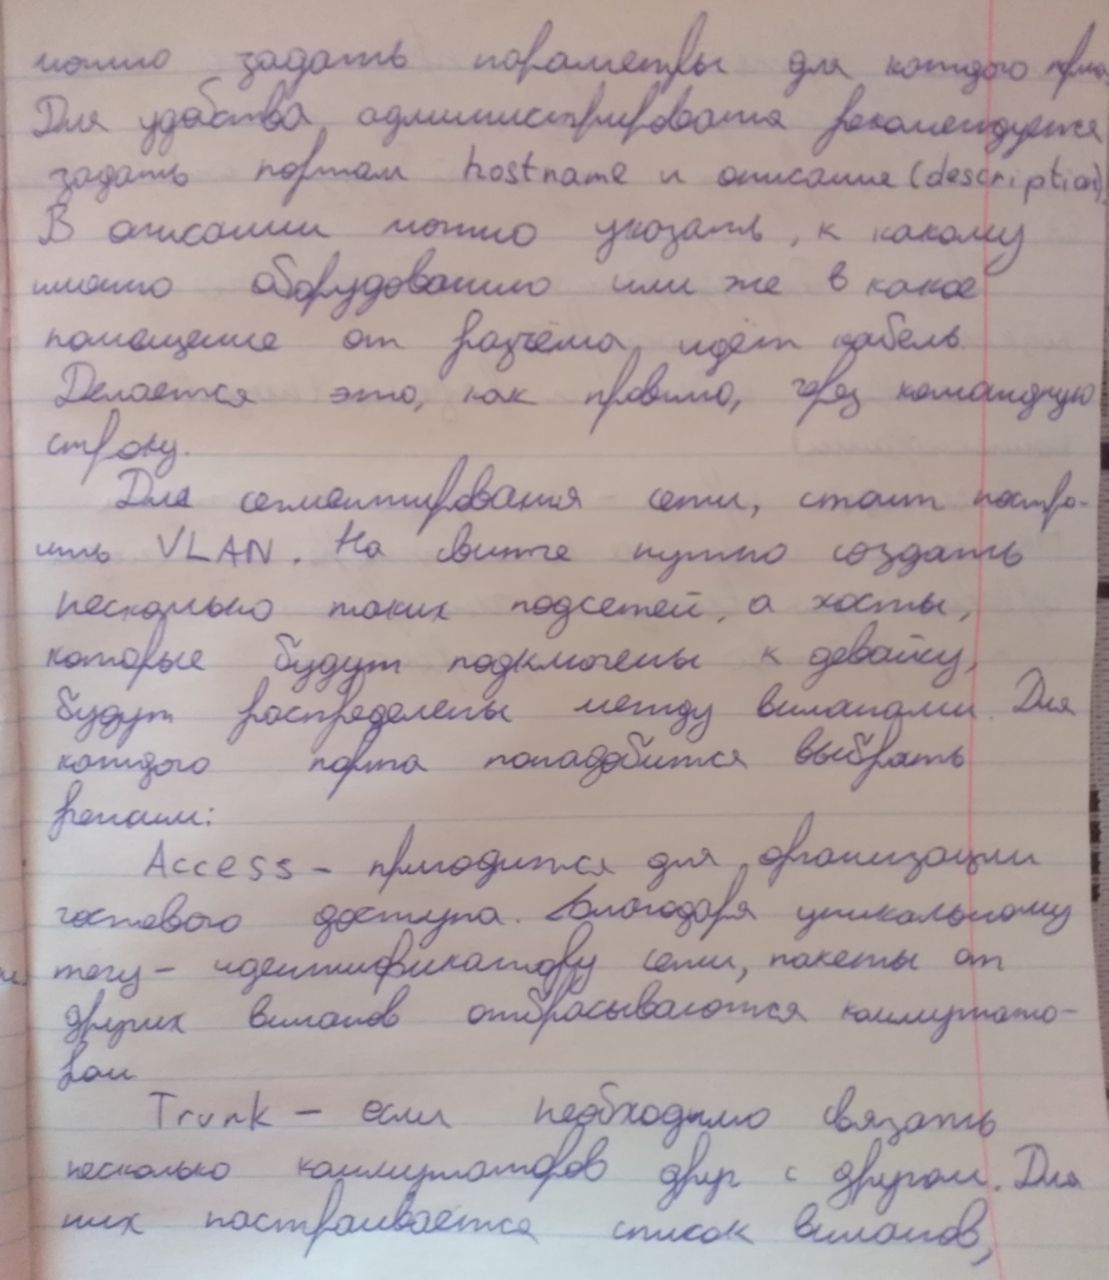 можно задать параметры для каждого
Для удобства администрирования рекомендуется
задать портам hostname и описание (description).
В описании можно указать, к какому
именно оборудованию или же в какое
помещение от разъёма идёт кабель.
Делается это, как правило, через командную
строку.
Для сегментирования сети, стоит настро-
ить VLAN. На свитче нужно создать
несколько таких подсетей, а хосты,
которые будут подключены к девайсу,
будут распределены между виланами. Для
каждого порта понадобится выбрать
режим:
Access - пригодится для организации
гостевого доступа. Благодаря уникальному
тегу - идентификатору сети, пакеты от
других виланов отбрасываются коммутато-
ром
Trunk - если необходимо связать
несколько коммутаторов друг с другом. Для
них настраивается список виланов,